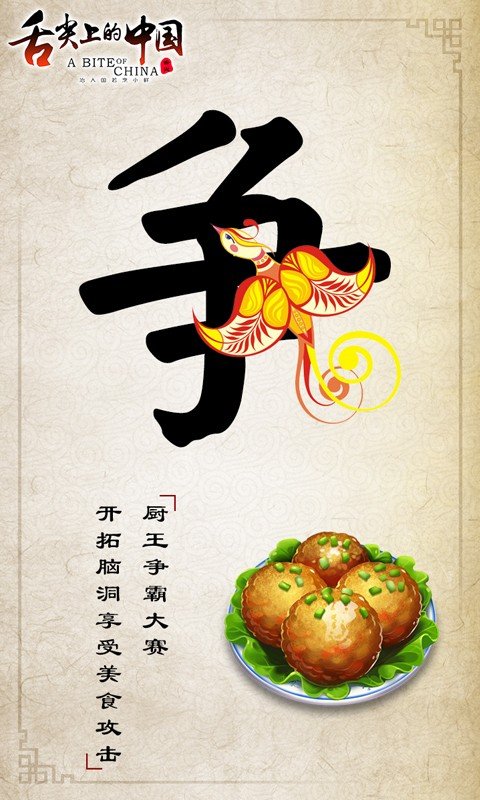 舌尖上的中国
A BITE OF
CHINA
争
厨王争霸大赛
开拓脑洞享受美食攻击